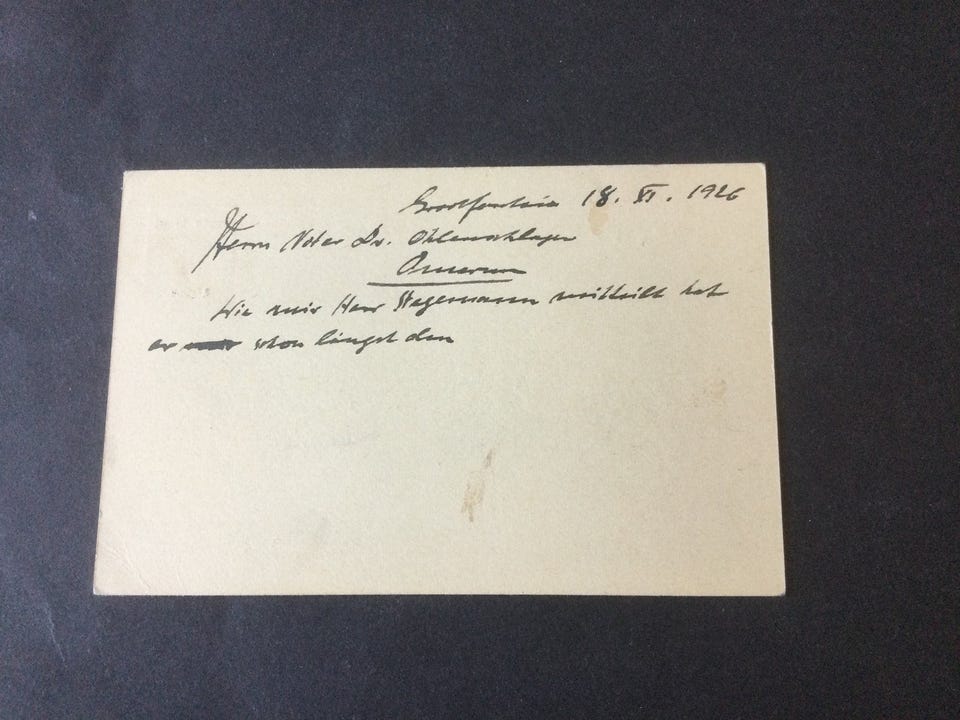 Grootfontein 18. XI. 1926
Herrn Notar Dr. Ohlenschlager
Omaruru
Wie mir Herr Stegemann mitteilt hat
er schon längst den